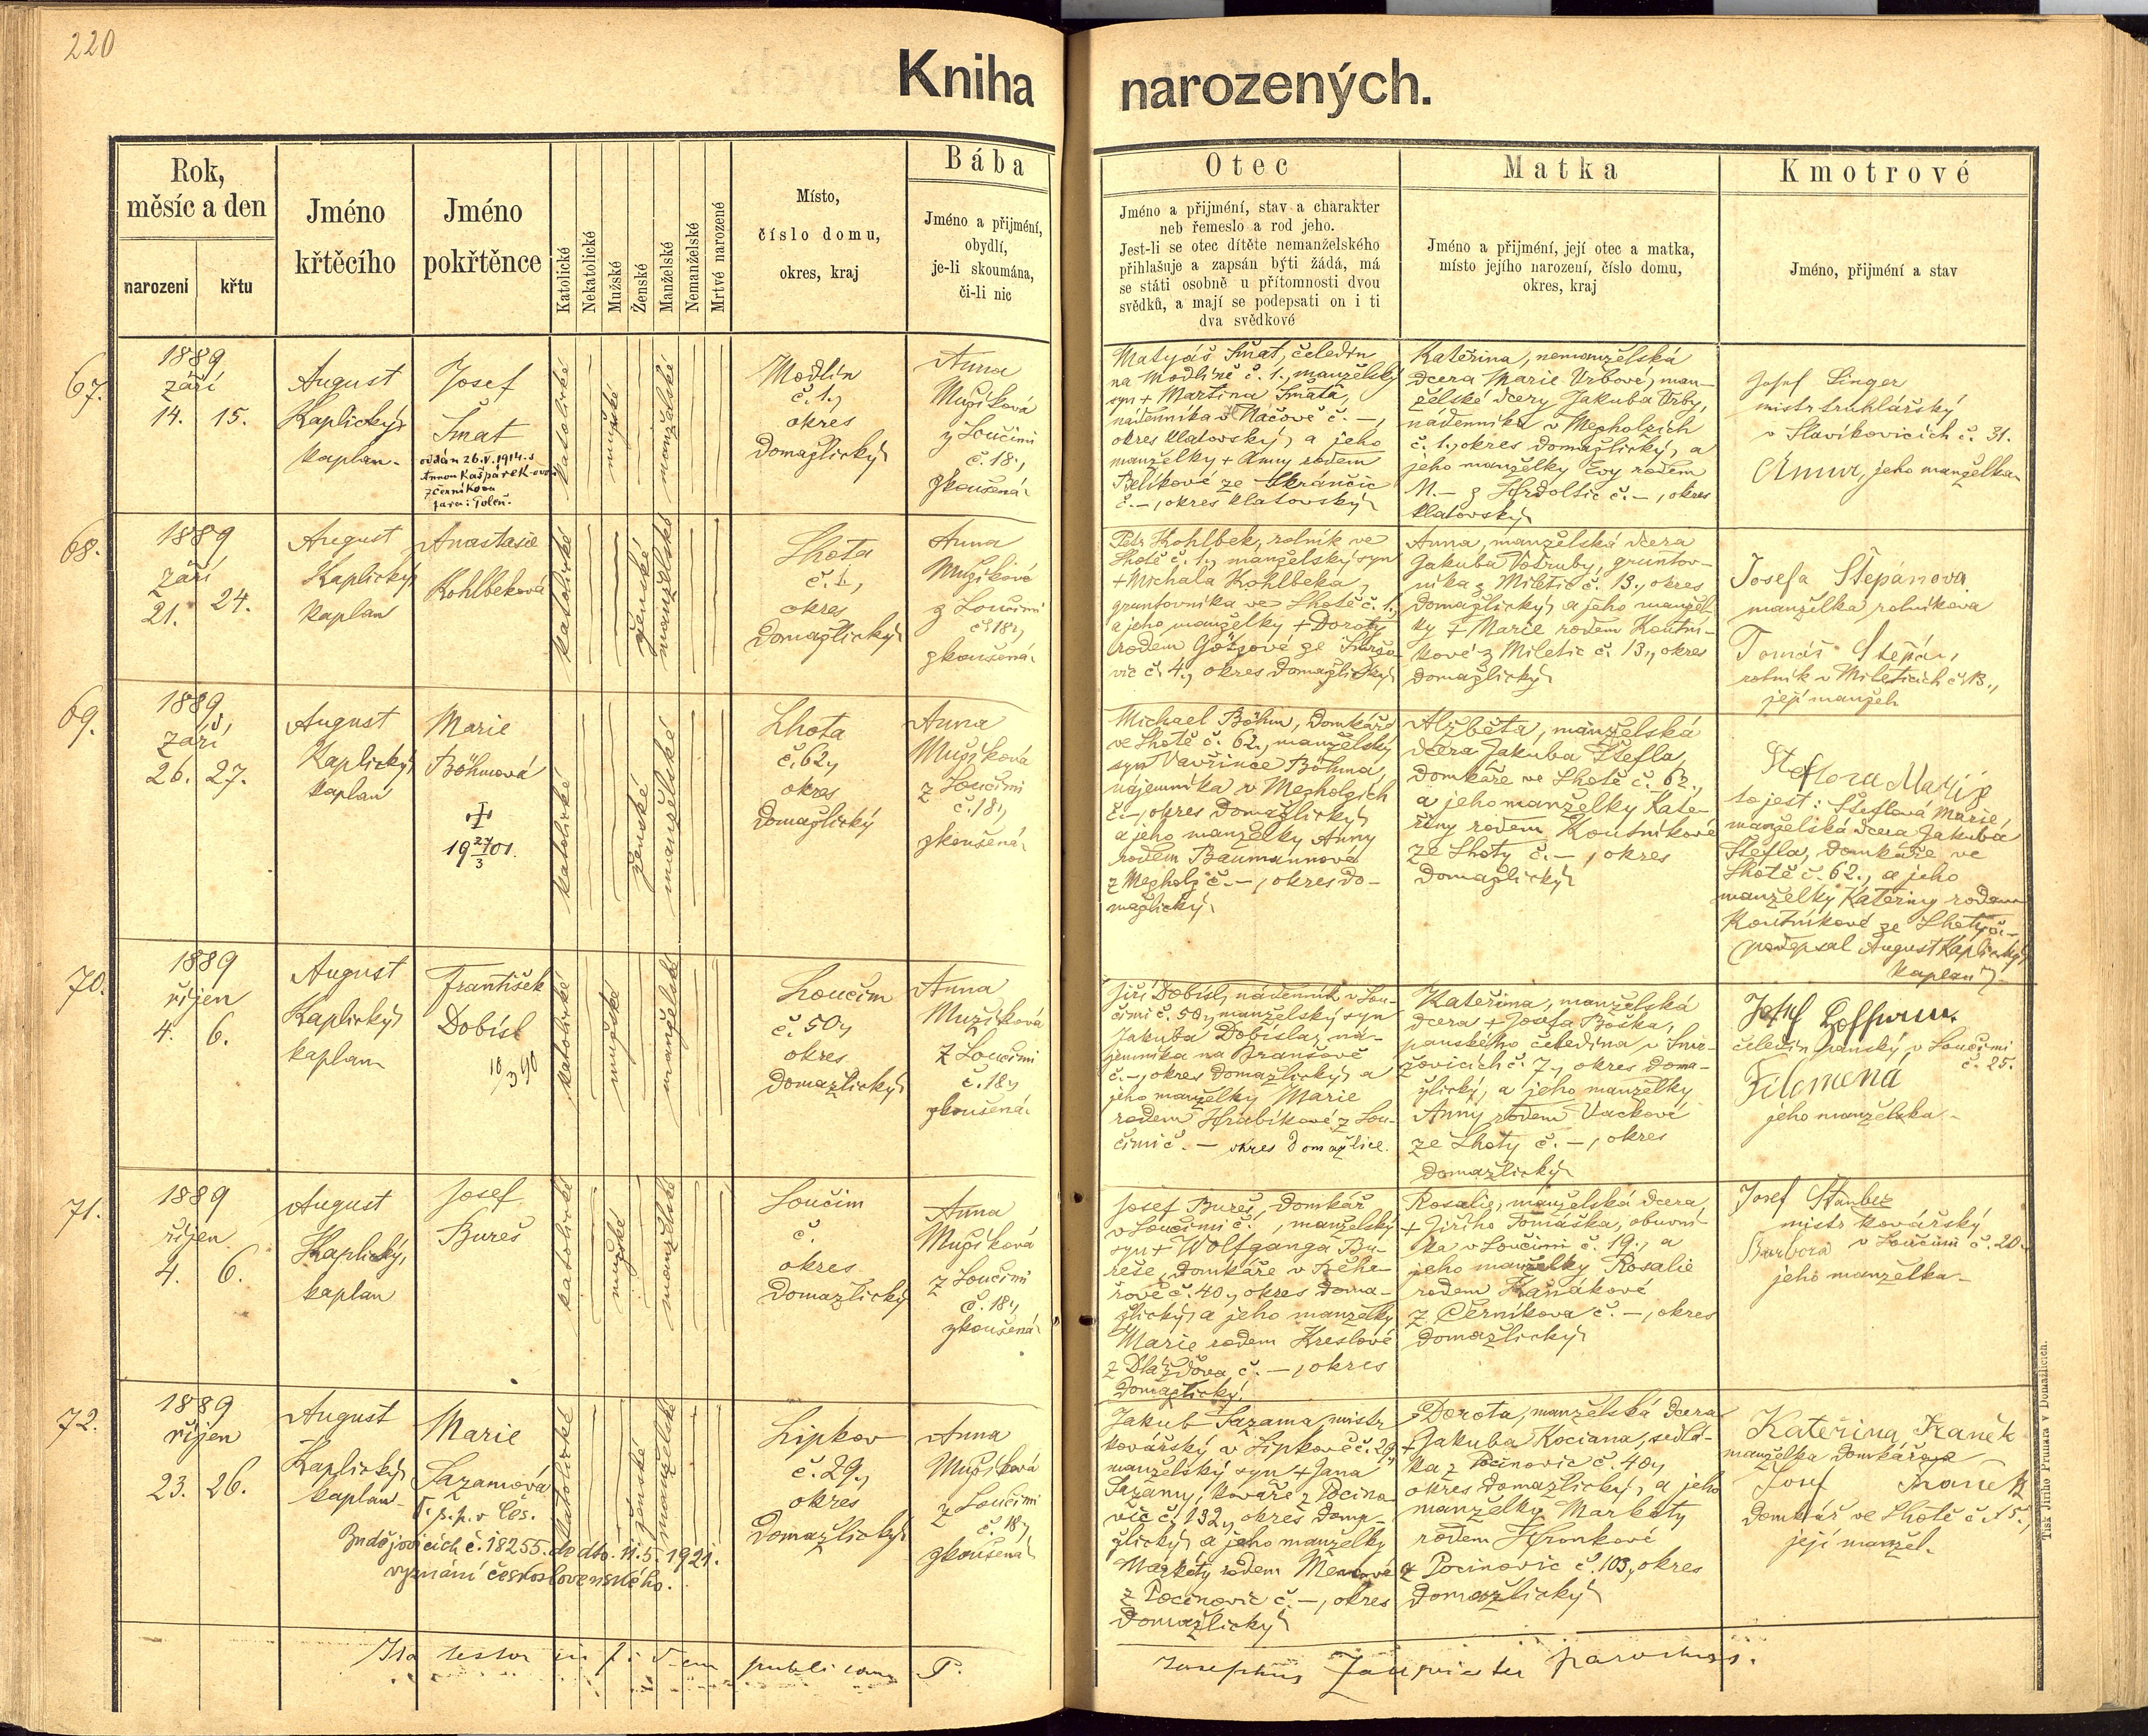 220
Kniha narozených.
Rok,
měsíc a den
narození
křtu
Jméno
křtěcího
Jméno
pokřtěnce
Katolické
Nekatolické
Mužské
Ženské
Manželské
Nemanželské
Mrtvé narozené
Místo,
číslo domu,
okres, kraj
Bába
Jméno a přijmění,
obydlí,
je-li skoumána,
či-li nic
Otec
Jméno a přijmění, stav a charakter
neb řemeslo a rod jeho.
Jest-li se otec dítěte nemanželského
přihlašuje a zapsán býti žádá, má
se státi osobně u přítomnosti dvou
svědků, a mají se podepsati on i ti
dva svědkové
Matka
Jméno a přijmění, její otec a matka,
místo jejího narození, číslo domu,
okres, kraj
Kmotrové
Jméno, přijmění a stav
67.
1889
září
14. 15.
August
Kaplický,
kaplan.
Josef
Šmat
oddán 26.V.1914 s
Annou Kašpárek-ovou
z Černíkova
fara: Poleň.
katolické
mužské
manželské
Modlín
č. 1.,
okres
Domažlický
Anna
Mužíková
z Loučimi
č. 18.,
zkoušená.
Matyáš Šmat, čeledín
na Modlíně č. 1., manželský
syn + Martina Šmata,
nádenníka v Náčově č. –,
okres Klatovský, a jeho
manželky + Anny rodem
Bělíkové ze
č. –, okres Klatovský
Kateřina, nemanželská
dcera Marie Vrbové, man-
želské dcery Jakuba Vrby,
nádenníka v Mezholzích
č. 1., okres Domažlický, a
jeho manželky Evy rodem
N. – z č. –, okres
Klatovský
Josef Singer
mistr truhlářský
v Slavíkovicích č. 31.
Anna, jeho manželka
68.
1889
září
21. 24.
August
Kaplický
kaplan
Anastasie
Kohlbeková
katolické
ženské
manželské
Lhota
č. 1.,
okres
Domažlický
Anna
Mužíková
z Loučimi
č. 18.,
zkoušená.
Petr Kohlbek, rolník ve
Lhotě č. 1., manželský syn
+ Michala Kohlbeka,
gruntovníka ve Lhotě č. 1.,
a jeho manželky + Doroty
rodem ze
č. 4., okres Domažlický
Anna, manželská dcera
Jakuba Votruby, gruntov-
níka z Miletic č. 13., okres
Domažlický, a jeho manžel-
ky + Marie rodem Koutní-
kové z Miletic č. 13., okres
Domažlický
Josefa Štepánova
manželka rolníkova
Tomáš Štepán,
rolník v Mileticích č. 13.,
její manžel.
69.
1889
září
26. 27.
August
Kaplický,
kaplan
Marie
Böhmová
19 27/3 01.
katolické
ženské
manželské
Lhota
č. 62.,
okres
Domažlický
Anna
Mužíková
z Loučimi
č. 18.,
zkoušená.
Michael Böhm, domkář
ve Lhotě č. 62., manželský
syn Vavřince Böhma,
nájemníka v Mezholzích
č. –, okres Domažlický,
a jeho manželky Anny
rodem Baumannové
z Mezholz č. –, okres Do-
mažlický.
Alžběta, manželská
dcera Jakuba Štefla,
domkáře ve Lhotě č. 62.,
a jeho manželky Kate-
řiny rodem Koutníkové
ze Lhoty č. –, okres
Domažlický
to jest: Šteflová Marie,
manželská dcera Jakuba
Štefla, domkáře ve
Lhotě č. 62., a jeho
manželky Kateřiny rodem
Koutníkové ze Lhoty č. –
(podepsal August Kaplický,
kaplan)
70.
1889
říjen
4. 6.
August
Kaplický,
kaplan
František
Dobisl
10/3 90
katolické
mužské
manželské
Loučim
č. 50.,
okres
Domažlický
Anna
Mužíková
z Loučimi
č. 18.,
zkoušená.
Jiří Dobisl, nádenník v Lou-
čimi č. 50., manželský syn
Jakuba Dobisla, ná-
jemníka na Branšově
č. –, okres Domažlický, a
jeho manželky Marie
rodem Hrubíkové z Lou-
čimi č. – okres Domažlice.
Kateřina, manželská
dcera + Josefa Boška,
panského čeledína v Smr-
žovicích č. 7., okres Doma-
žlický, a jeho manželky
Anny rodem Vackové
ze Lhoty č. –, okres
Domažlický
Josef
čeledín panský v Loučimi
č. 25.
Filomena
jeho manželka.
71.
1889
říjen
4. 6.
August
Kaplický,
kaplan
Josef
Bureš
katolické
mužské
manželské
Loučim
č.
okres
Domažlický
Anna
Mužíková
z Loučimi
č. 18.,
zkoušená.
Josef Bureš, domkář
v Loučimi č. , manželský
syn + Wolfganga Bu-
reše, domkáře v Běha-
řově č. 40., okres Doma-
žlický, a jeho manželky
Marie rodem Kreslové
z Dlažďova č. –, okres
Domažlický.
Rosalie, manželská dcera
+ Jiřího Tomáška, obuvní-
ka v Loučimi č. 19., a
jeho manželky Rosalie
rodem
z Černíkova č. –, okres
Domažlický
Josef
mistr kovářský
v Loučimi č. 20.
Barbora
jeho manželka.
72.
1889
říjen
23. 26.
August
Kaplický,
kaplan
Marie
Sazamová
v Čes.
Budějovicích č. 18255. de dto. 11.5.1921.
vyznání československého.
katolické
ženské
manželské
Lipkov
č. 29.,
okres
Domažlický
Anna
Mužíková
z Loučimi
č. 18.,
zkoušená
Jakub Sazama, mistr
kovářský v Lipkově č. 29.,
manželský syn + Jana
Sazamy, kováře z Pocino-
vic č. 132., okres Doma-
žlický a jeho manželky
Markéty rodem
z Pocinovic č. –, okres
Domažlický
Dorota, manželská dcera
+ Jakuba Kociana, sedlá-
ka z Pocinovic č. 40.,
okres Domažlický, a jeho
manželky Markéty
rodem Hronkové
z Pocinovic č. 103., okres
Domažlický
Kateřina Traněk
manželka domkářova
Josef
domkář ve Lhotě č. 15.,
její manžel.
Ita testor in fidem publicam
Josephus parochus.
Tisk Jiřího Prunara v Domažlicích.